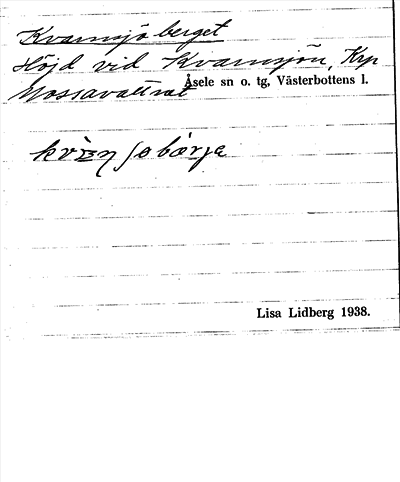 Kvarnsjöberget
Höjd vid Kvarnsjön, Krp
Mossavattnet
Åsele sn o. tg, Västerbottens l.
Lisa Lidberg 1938.